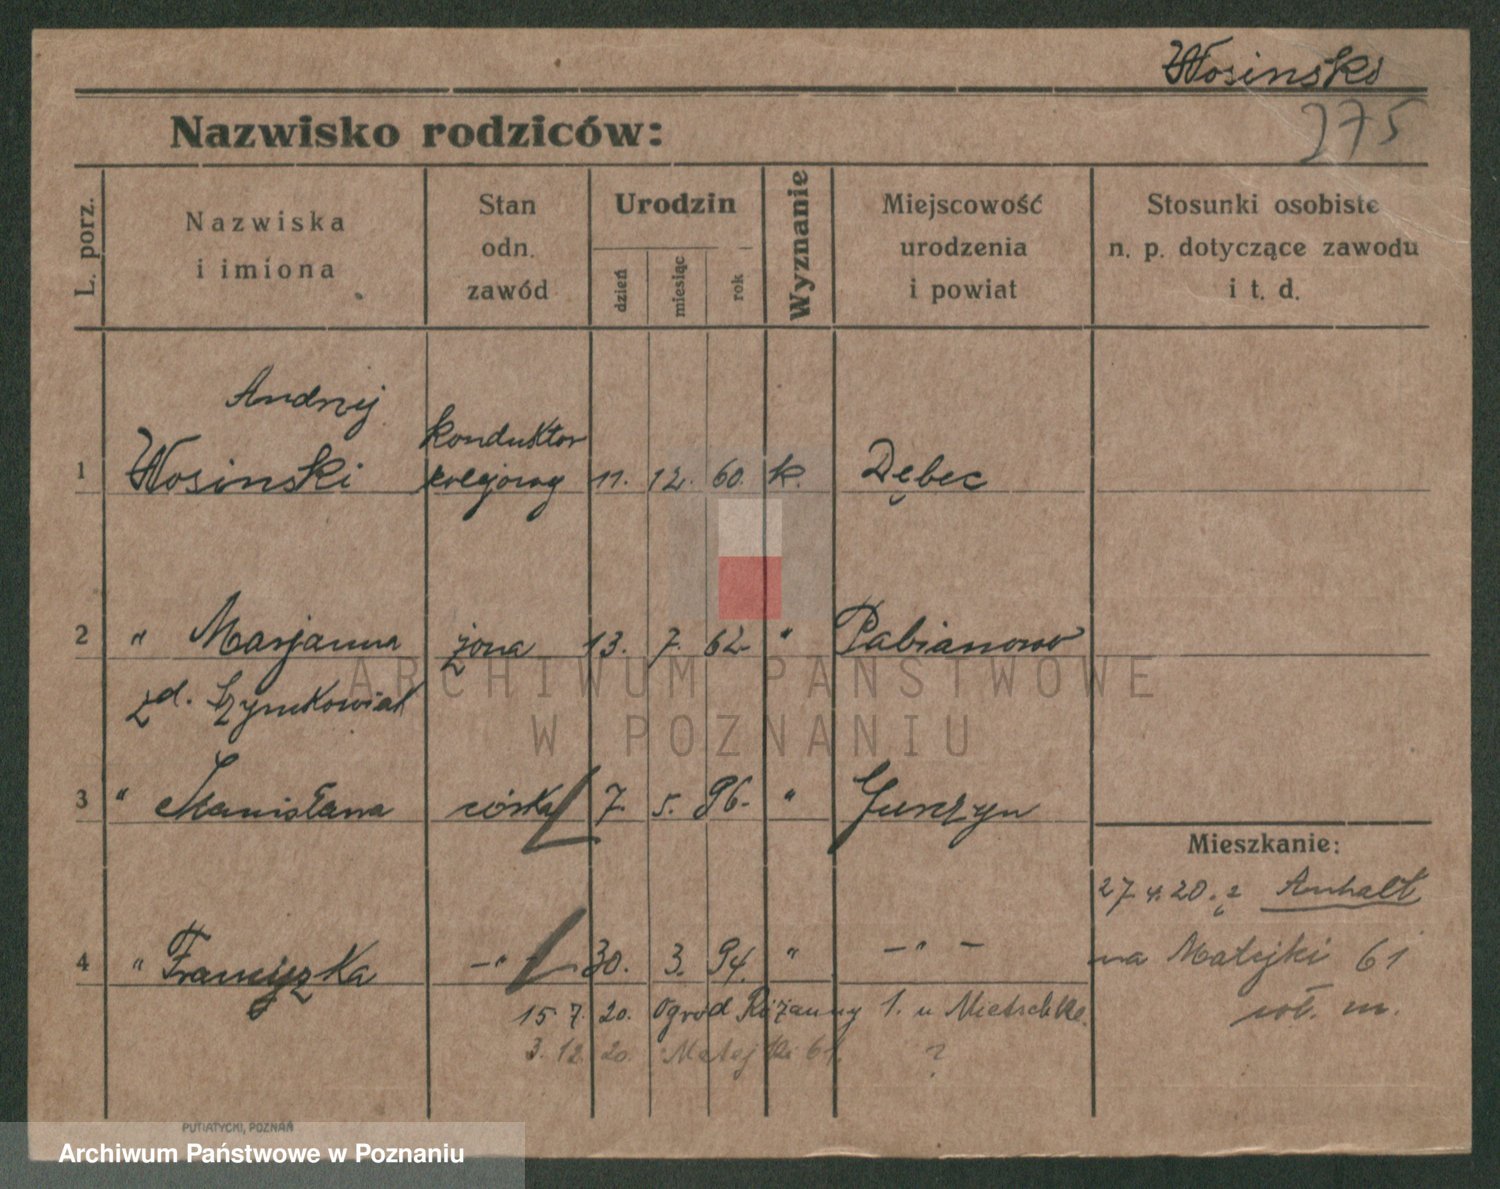 Wosinski
275
Nazwisko rodziców:
L. porz.
Nazwiska
i imiona
Stan
odn.
zawód
Urodzin
dzień
miesiąc
rok
Wyznanie
Miejscowość
urodzenia
i powiat
Stosunki osobiste
n. p. dotyczące zawodu
i t. d.
Andrzej
konduktor
1 Wosinski kolejowy 11. 12. 60. k. Dębiec
2 " Marjanna żona 13. 7. 62. " Pabianowo
zd. Szymkowiak
3 " Stanisława córka 7. 5. 96. " Junczyn
Mieszkanie:
27 4. 20. z Anhalt
4 " Franciszka — " — 30. 3. 94. " — " —
na Matejki 61
15 7. 20. Ogród Różanny 1. u Nietschke.
3. 12 20. Matejki 61. ?
PUTIATYCKI, POZNAŃ
ARCHIWUM PAŃSTWOWE
W POZNANIU
Archiwum Państwowe w Poznaniu